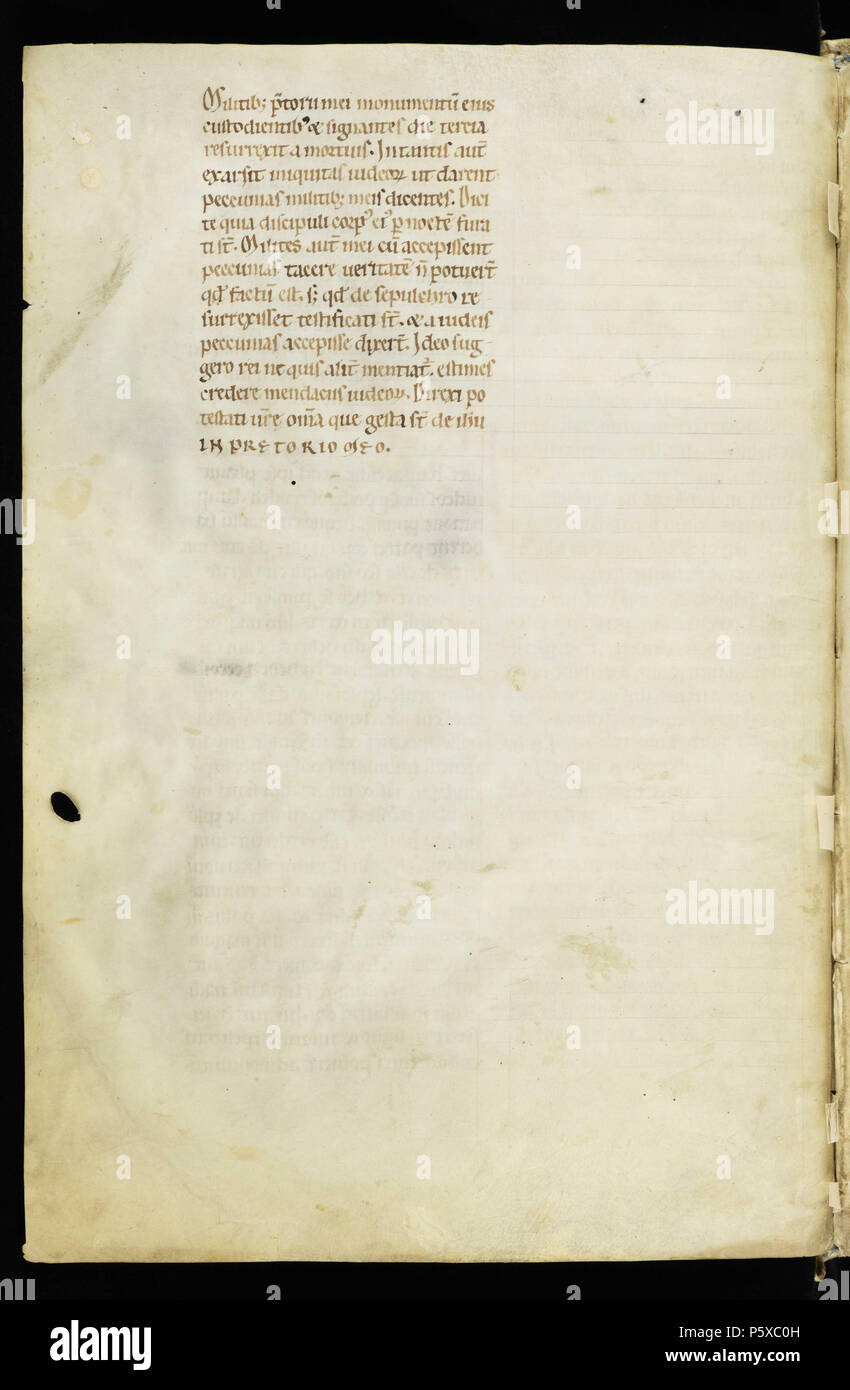 Militib; p̄toru mei monumentū eius
custodientibꝰ & signantes die tercia
resurrexit a mortuis. In tantis aut̄
exarsit iniquitas iudeoꝝ ut darent
peccunias militib; meis dicentes. Dici
te quia discipuli corpꝰ eiꝰ p noctē fura
ti st̄. Milites aut̄ mei cū accepissent
peccunias tacere ueritatē n̄ potuer̄t
qd̄ factū est. s; qd̄ de sepulchro re
surrexisset testificati st̄. & a iudeis
peccunias accepisse dixer̄t. Ideo sug
gero rei ut quis alit̄ mentiat̄. estimes
credere mendaciis iudeoꝝ. Direxi po
testati ur̄e om̄a que gesta st̄ de ihu
IN PRETORIO MEO.
alamy
Image ID: P5XC0H
www.alamy.com